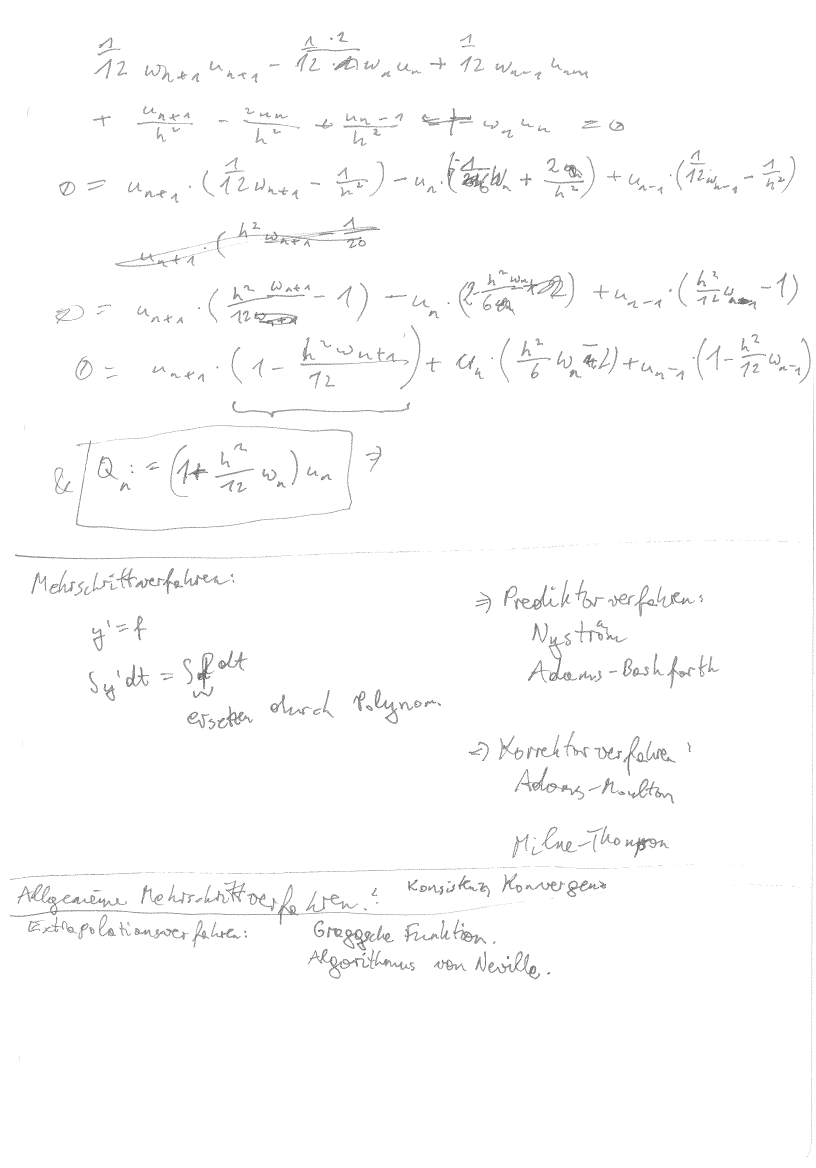 1/12 w_{n+1} u_{n+1} - 1·2/12 w_n u_n + 1/12 w_{n-1}
+ u_{n+1}/h² - 2u_n/h² + u_{n-1}/h² w_n u_n = 0
0 = u_{n+1} · (1/12 w_{n+1} - 1/h²) - u_n · ( w_n + 2/h²) + u_{n-1} · (1/12 w_{n-1} - 1/h²)
u_{n+1} · (h² w_{n+1} - 1/20
0 = u_{n+1} · (h² w_{n+1}/12 - 1) - u_n · ( h² w_n/6 ) + u_{n-1} · (h²/12 w_{n-1} - 1)
0 = u_{n+1} · (1 - h² w_{n+1}/12) + u_n · (h²/6 w_n 2) + u_{n-1} · (1 - h²/12 w_{n-1})
& Q_n := (1+ h²/12 w_n) u_n ⇒
Mehrschrittverfahren:
y' = f
∫y'dt = ∫f dt
ersetzen durch Polynom.
⇒ Prediktorverfahren:
Nyström
Adams-Bashforth
⇒ Korrektorverfahren:
Adams-Moulton
Milne-Thompson
Allgemeine Mehrschrittverfahren: Konsistenz, Konvergenz
Extrapolationsverfahren: Graggsche Funktion.
Algorithmus von Neville.